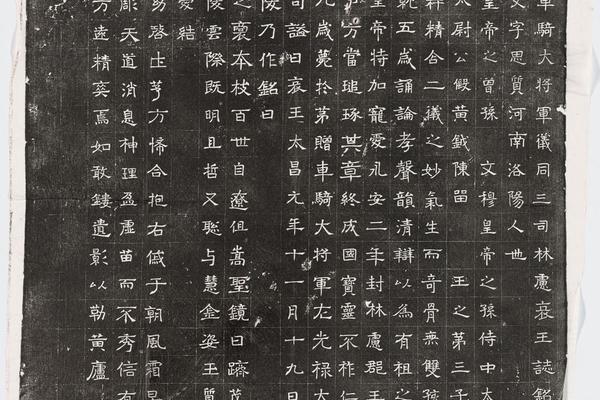 車騎大將軍儀同三司林慮哀王誌銘
文字思質河南洛陽人也
皇帝之曾孫 文穆皇帝之孫侍中太
太尉公假黃鉞陳留 王之第三子
粹精合二儀之妙氣生而奇骨無雙孩
五歲誦論孝聲韻清辯以為有祖之
皇帝特加寵愛永安二年封林慮郡王
方當琢其章終成國寶靈不祚仁
九歲薨於第贈車騎大將軍左光祿大
司謚曰哀王太昌元年十一月十九日
陵乃作銘曰
之裔本枝百世自遼徂嵩聖鏡日躋茂
陵雲際既明且哲又聰与慧金姿玉質
愛結
易啓土茅方悕合抱右戚于朝風霜
彫天道消息神理盈虛苗而不秀信有
方遠精爽焉如敢鏤遺影以勒黃廬